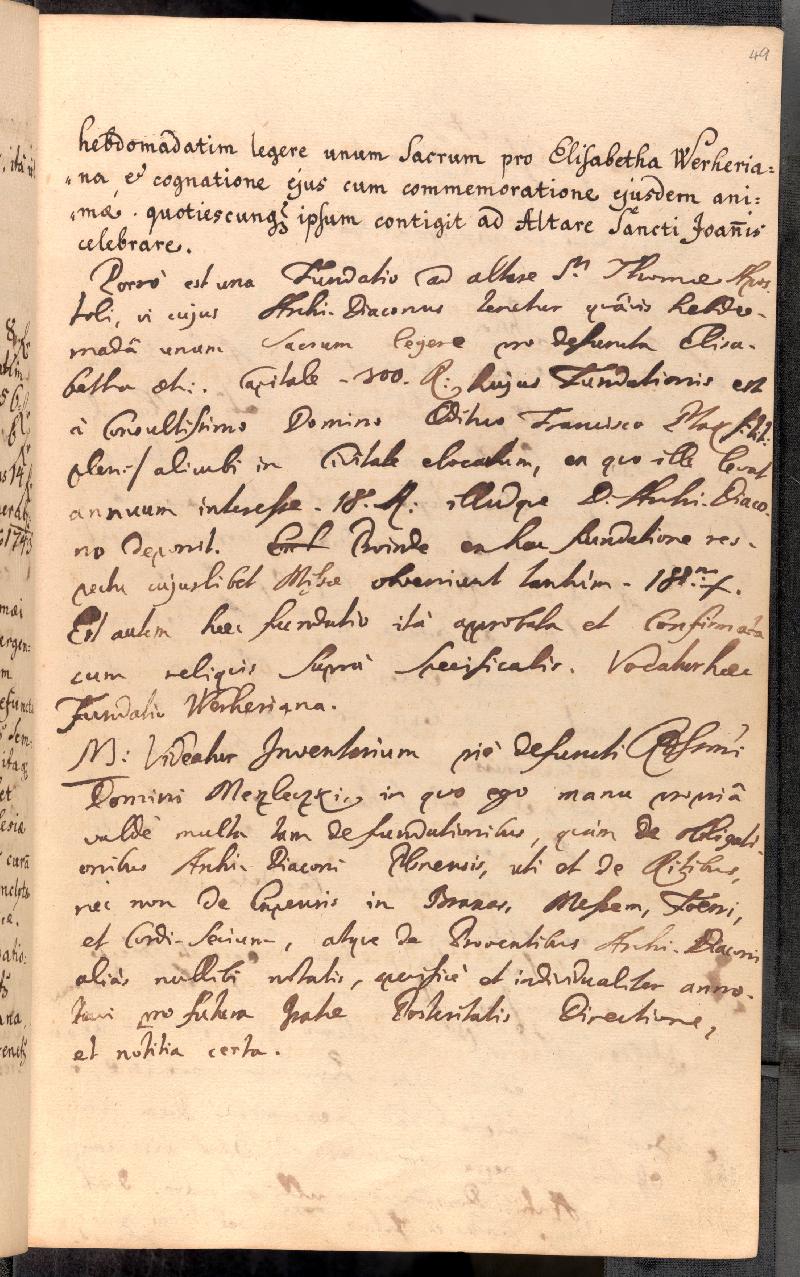 49
hebdomadatim legere unum Sacrum pro Elisabetha Werheria=
na, et cognatione ejus cum commemoratione ejusdem ani=
mæ. quotiescunq3 ipsum contigit ad Altare Sancti Joañis
celebrare.
Porro est una Fundatio ad altare Sti Thomæ Apos
toli, vi cujus Archi-Diaconus tenetur quâvis hebdo-
madâ unum Sacrum legere pro defuncta Elisa-
betha etc: Capitale - 300. R: hujus Fundationis est
à Consultissimo Domino Ædituo Francisco
alicubi in Civitate elocatum, ex quo ille levat
annuum interesse - 18. R: illudque D. Archi-Diaco-
no deponit. Est Proinde ex hac fundatione res-
pectu cujuslibet Missæ obveniunt tantum - 18
Est autem hæc fundatio ità approbata et Confirmata
cum reliquis supra specificatis. Vocatur hæc
Fundatio Werheriana.
NB: Videatur Inventarium piè defuncti
Domini in quo ego manu propriâ
valdè multa tam de fundationibus, quàm de obligati-
onibus Archi-Diaconi Plsnensis, uti et de Ritibus,
nec non de Expensis in Braxas, Messem, Foeni,
et Cordi-Secium, atque de Proventibus Archi-Diaconi
aliàs nullibi notatis, specificè et individualiter anno-
tavi pro futura gratae Posteritatis Directione,
et notitia certa.